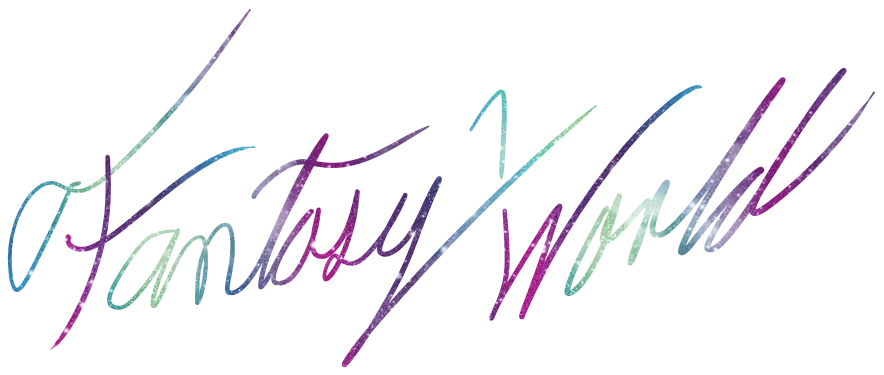 a Fantasy World